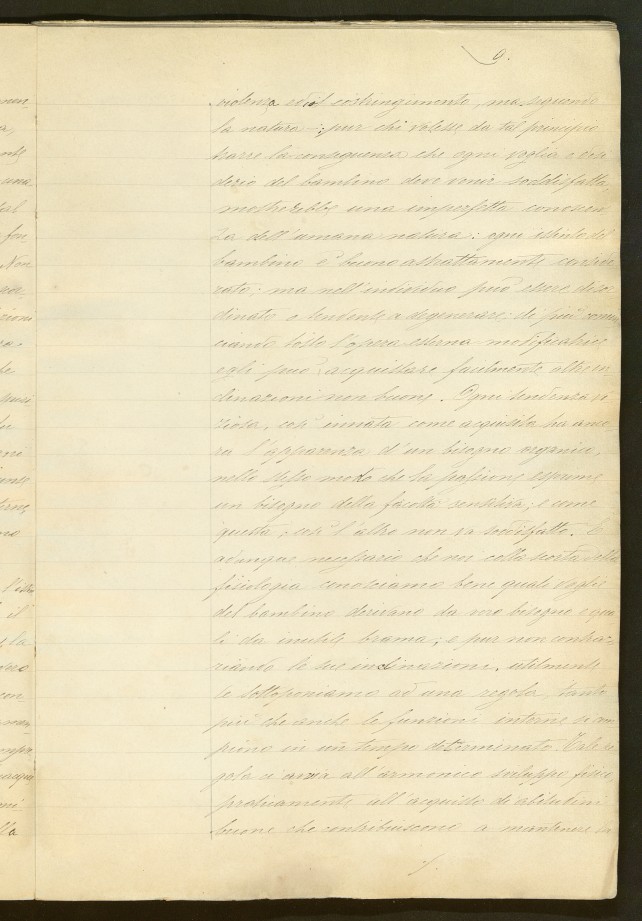 9.
violenza ed il costringimento, ma seguendo
la natura; pur chi volesse da tal principio
trarre la conseguenza che ogni voglia e desi
derio del bambino deve venir soddisfatta
mostrerebbe una imperfetta conoscen
za dell'umana natura: ogni istinto del
bambino è buono astrattamente conside
rato; ma nell'individuo può essere disor
dinato o tendente a degenerare: di più comin
ciando tosto l'opera esterna modificatrice
egli può acquistare facilmente altre in
clinazioni non buone. Ogni tendenza vi
ziosa, così innata come acquisita ha anco
ra l'apparenza d'un bisogno organico,
nello stesso modo che la passione esprime
un bisogno della facoltà sensitiva; e come
questa, così l'altro non va soddisfatto. È
adunque necessario che noi colla scorta della
fisiologia conosciamo bene quali voglie
del bambino derivano da vero bisogno e qua
li da inutile brama; e pur non contra
riando le sue inclinazioni, utilmente
le sottoponiamo ad una regola, tanto
più che anche le funzioni interne si com
piono in un tempo determinato. Tale re
gola ci avvia all'armonico sviluppo fisico
praticamente all'acquisto di abitudini
buone che contribuiscono a mantenere la